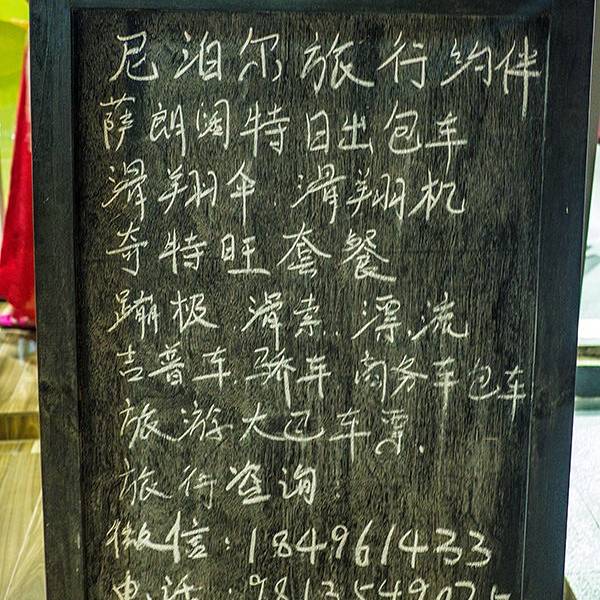 尼泊尔旅行约伴
萨朗阔特日出包车
滑翔伞 滑翔机
奇特旺套餐
蹦极.滑索.漂流
吉普车.骄车 商务车包车
旅游大巴车票.
旅行咨询:
微信:184961433
电话: